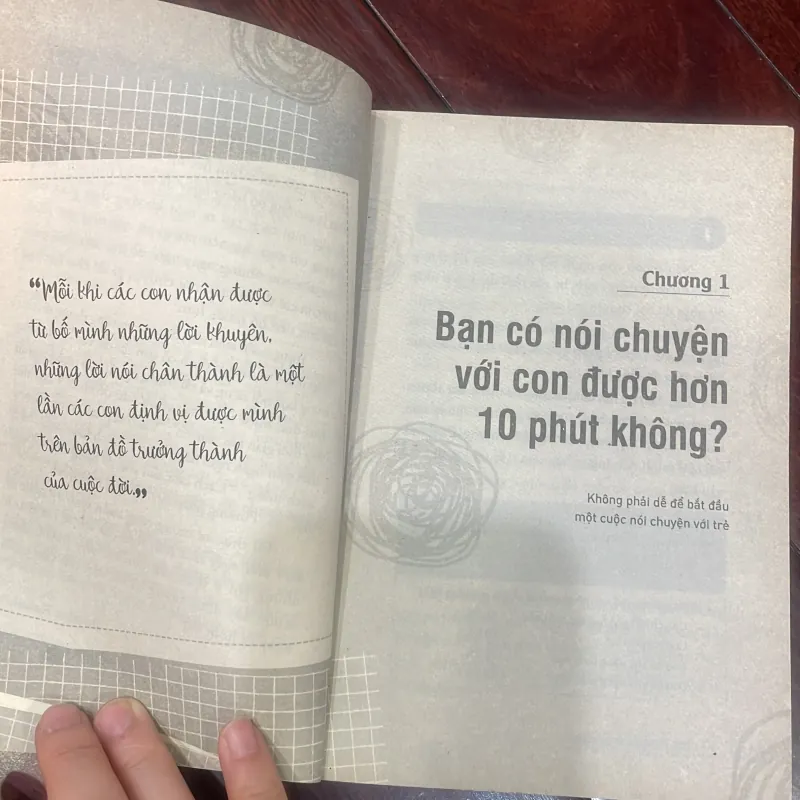 “Mỗi khi các con nhận được
từ bố mình những lời khuyên,
những lời nói chân thành là một
lần các con định vị được mình
trên bản đồ trưởng thành
của cuộc đời.”
Chương 1
Bạn có nói chuyện
với con được hơn
10 phút không?
Không phải dễ để bắt đầu
một cuộc nói chuyện với trẻ